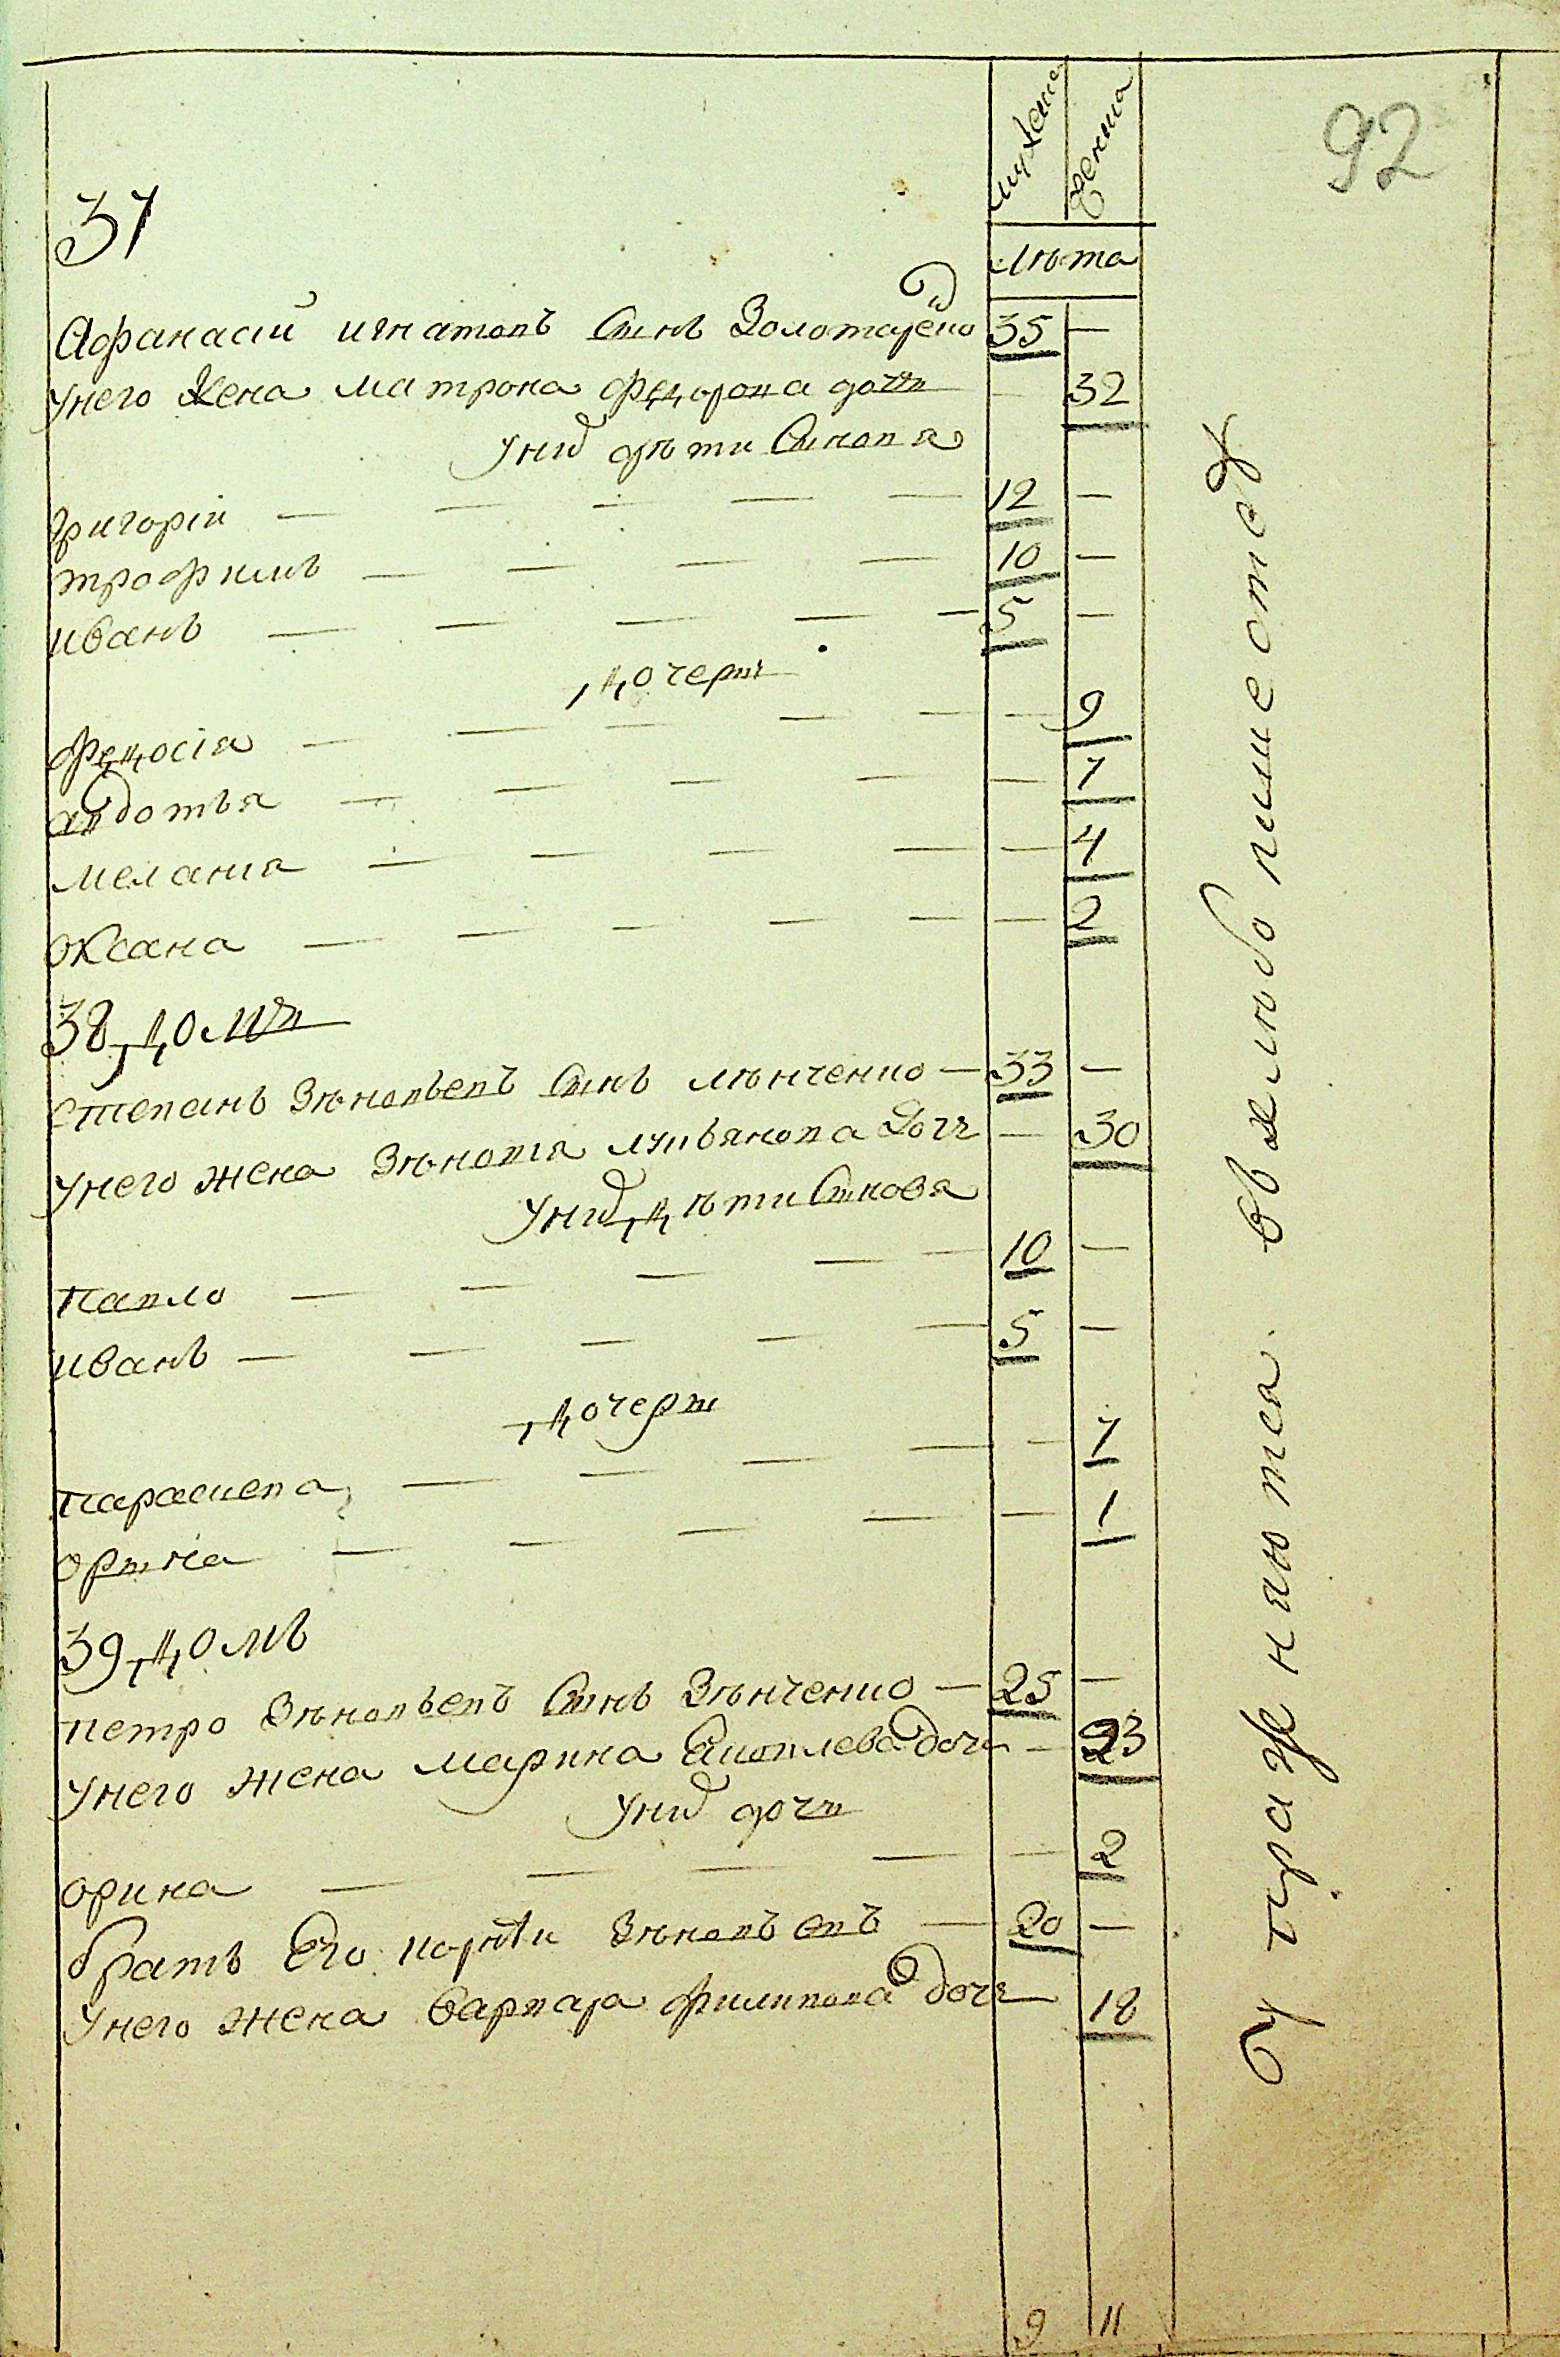 92
мужеска женска
лѣта
37
Афанасий игнатовъ Сынъ Золотарено 35 —
унего жена матрона федорова дочь — 32
уних дѣти Сыновя
григорiи — 12 —
трофимъ — 10 —
иванъ — 5 —
дочеры
федосiя — 9
авдотья — 7
мелания — 4
оксана — 2
38 домъ
степанъ Зѣновьевъ Сынъ — 33 —
унего жена Зѣновия лукьянова Дочь — 30
уних дѣти Сыновя
павло — 10 —
иванъ — 5 —
дочеры
параскева — 7
орына — 1
39 домъ
петро Зѣновьевъ Сынъ Зѣнченко — 25 —
унего жена марина Яковлева дочь — 23
уних дочь
орина — 2
братъ Его Зѣновъевъ — 20 —
унего жена варвара филипова дочь 18
9 11
упражняются. в хлѣбопашестве